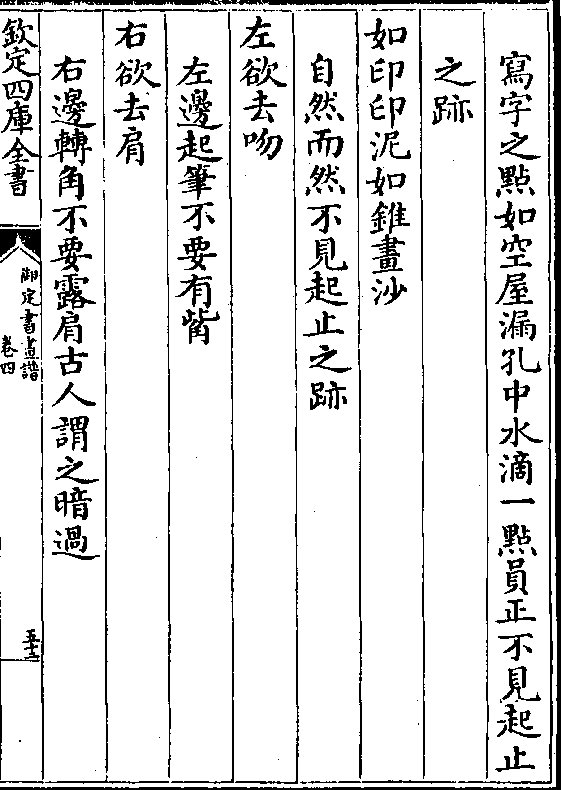 寫字之點如空屋漏孔中水滴一點員正不見起止
之跡
如印印泥如錐畫沙
自然而然不見起止之跡
左欲去吻
左邊起筆不要有觜
右欲去肩
右邊轉角不要露肩古人謂之暗過
欽定四庫全書
御定書畫譜
卷四
五十三